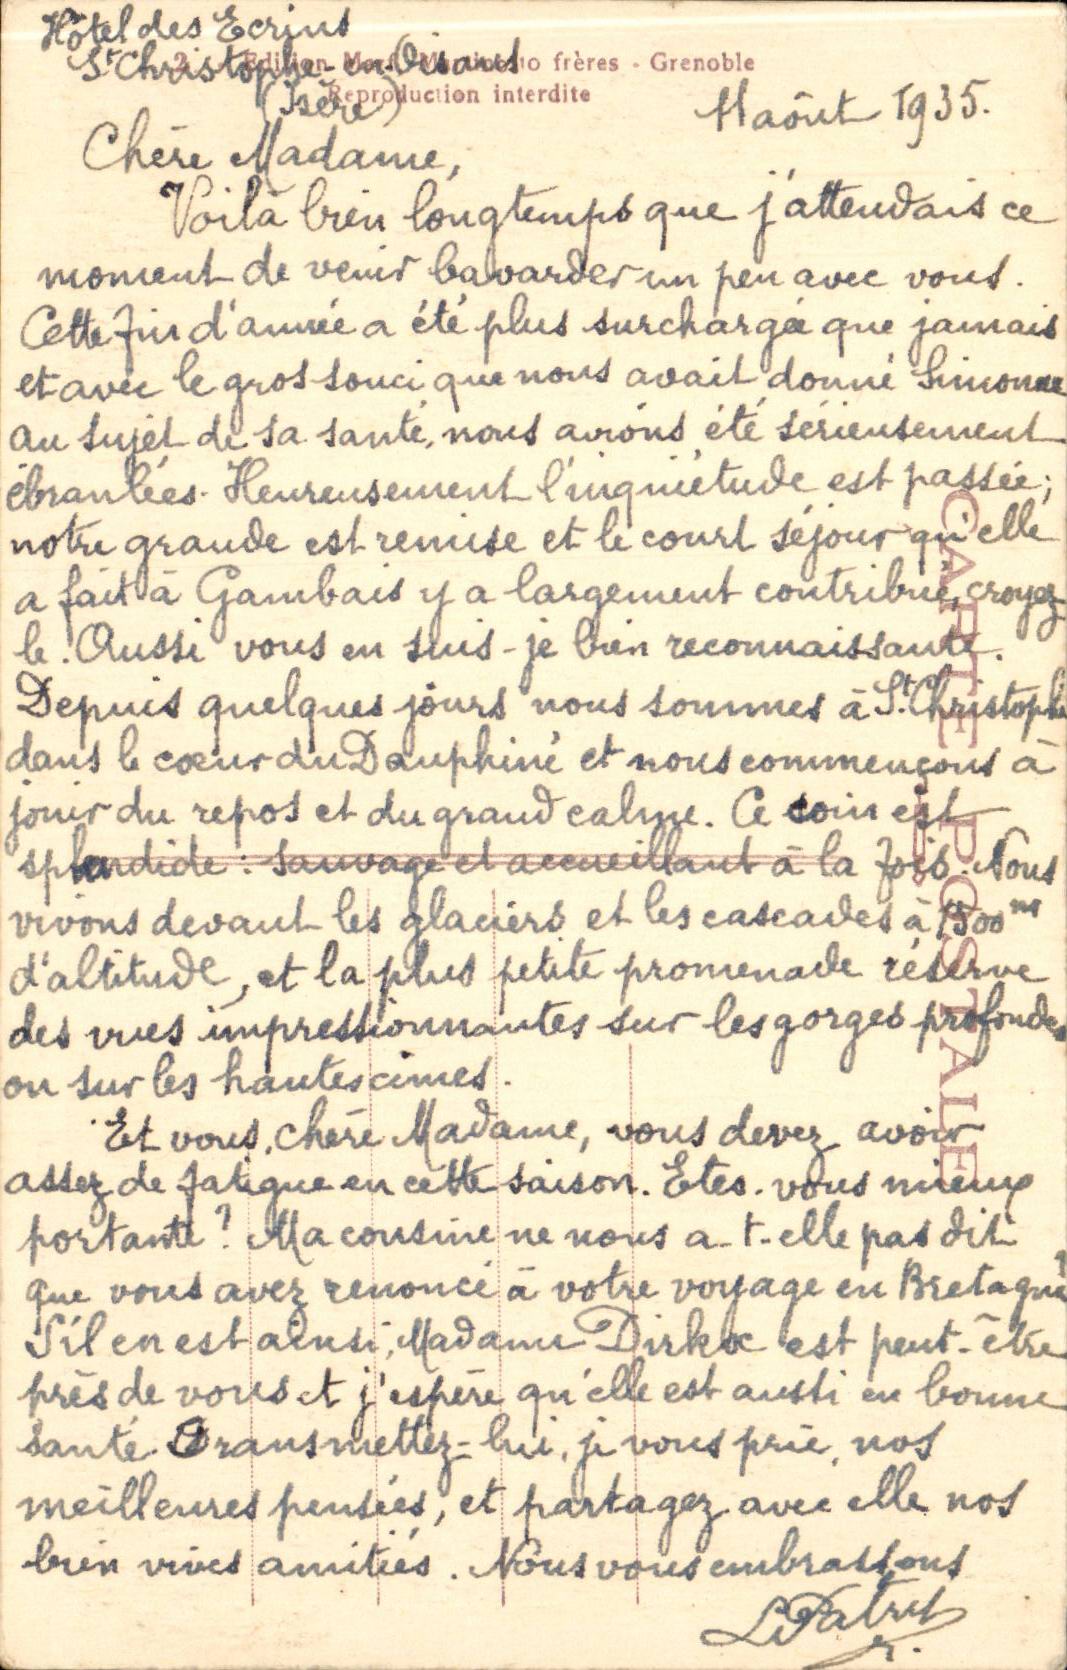 Hôtel des Ecrins
St Christophe-en-Oisans
(Isère)
Edition frères - Grenoble
Reproduction interdite
août 1935.
Chère Madame,
Voilà bien longtemps que j'attendais ce
moment de venir bavarder un peu avec vous.
Cette fin d'année a été plus surchargée que jamais
et avec le gros souci que nous avait donné Simonne
au sujet de sa santé, nous avions été sérieusement
ébranlées. Heureusement l'inquiétude est passée;
notre grande est remise et le court séjour qu'elle
a fait à Gambais y a largement contribué, croyez-
le. Aussi vous en suis-je bien reconnaissante.
Depuis quelques jours nous sommes à St. Christophe
dans le cœur du Dauphiné et nous commençons à
jouir du repos et du grand calme. Ce coin est
splendide : sauvage et accueillant à la fois. Nous
vivons devant les glaciers et les cascades à 1500 m
d'altitude, et la plus petite promenade réserve
des vues impressionnantes sur les gorges profondes
ou sur les hautes cimes.
Et vous, chère Madame, vous devez avoir
assez de fatigue en cette saison. Etes-vous mieux
portante ? Ma cousine ne nous a-t-elle pas dit
que vous avez renoncé à votre voyage en Bretagne ?
S'il en est ainsi, Madame est peut-être
près de vous et j'espère qu'elle est aussi en bonne
santé. Transmettez-lui, je vous prie, nos
meilleures pensées, et partagez avec elle nos
bien vives amitiés. Nous vous embrassons
CARTE POSTALE